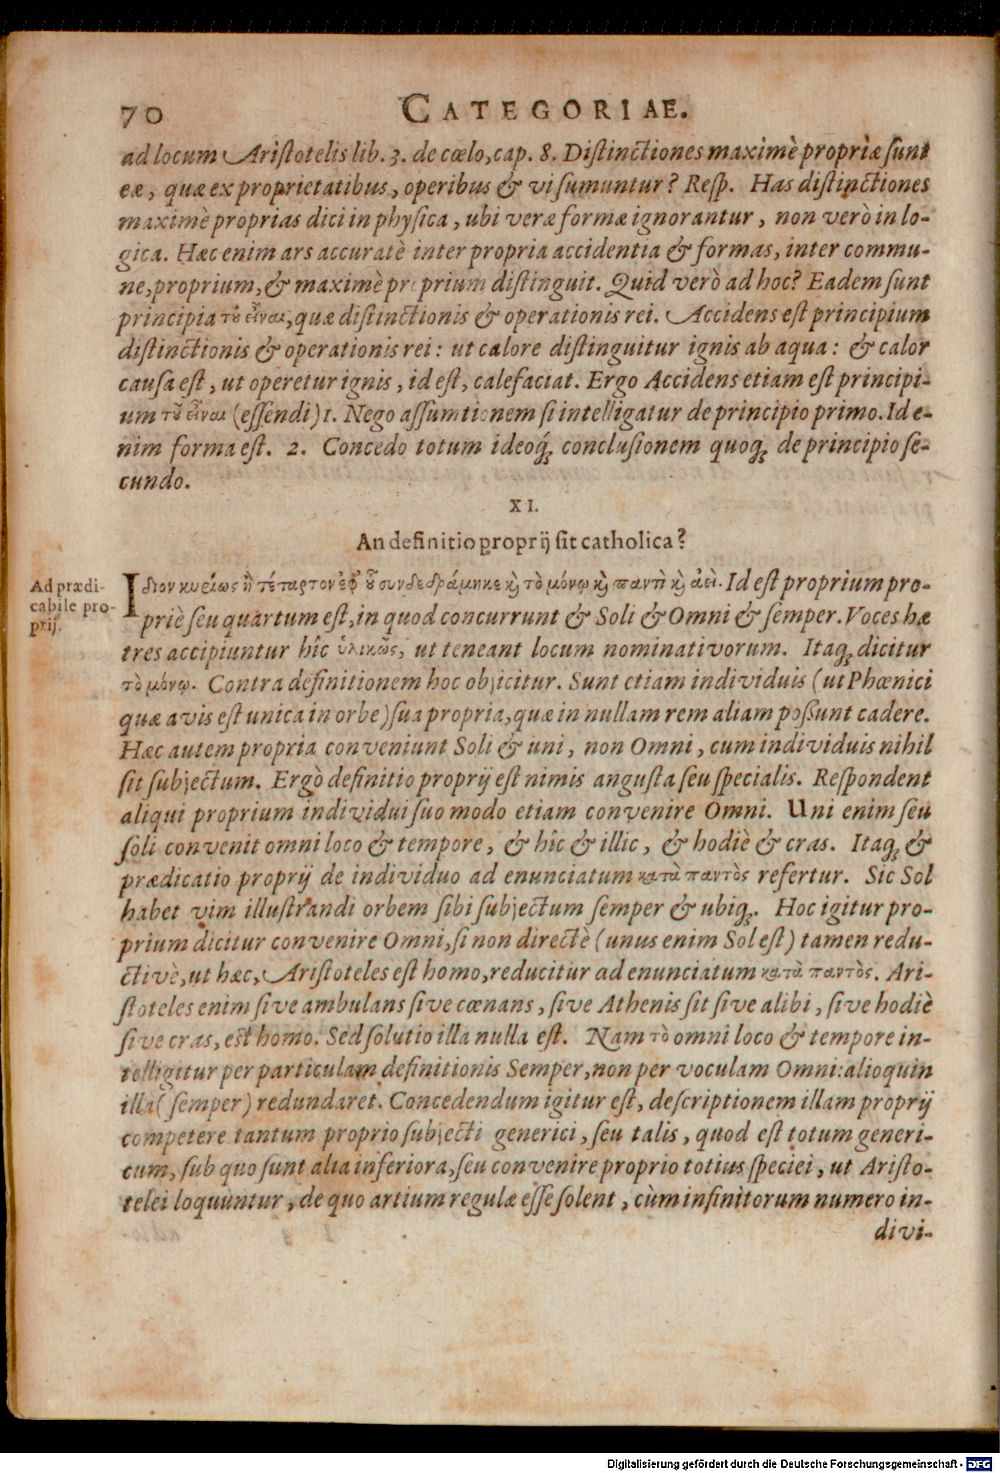 70 CATEGORIAE.
ad locum Aristotelis lib. 3. de cœlo, cap. 8. Distinctiones maximè propriæ sunt
eæ, quæ ex proprietatibus, operibus & vi sumuntur? Resp. Has distinctiones
maximè proprias dici in physica, ubi veræ formæ ignorantur, non verò in lo-
gica. Hæc enim ars accuratè inter propria accidentia & formas, inter commu-
ne, proprium, & maximè proprium distinguit. Quid verò ad hoc? Eadem sunt
principia τοῦ εἶναι, quæ distinctionis & operationis rei. Accidens est principium
distinctionis & operationis rei: ut calore distinguitur ignis ab aqua: & calor
causa est, ut operetur ignis, id est, calefaciat. Ergo Accidens etiam est principi-
um τοῦ εἶναι (essendi) 1. Nego assumtionem si intelligatur de principio primo. Id e-
nim forma est. 2. Concedo totum ideoq́; conclusionem quoq; de principio se-
cundo.
XI.
An definitio proprij sit catholica?
Ad prædi-
cabile pro-
prij.
Ἴδιον κυρίως ἢ τέταρτον ἐφ᾽ οὗ συνδεδράμηκε κỳ τὸ μόνῳ κỳ παντὶ κỳ ἀεὶ. Id est proprium pro-
priè seu quartum est, in quod concurrunt & Soli & Omni & semper. Voces hæ
tres accipiuntur hîc ὑλικῶς, ut teneant locum nominativorum. Itaq; dicitur
τὸ μόνῳ. Contra definitionem hoc objicitur. Sunt etiam individuis (ut Phœnici
quæ avis est unica in orbe) sua propria, quæ in nullam rem aliam possunt cadere.
Hæc autem propria conveniunt Soli & uni, non Omni, cum individuis nihil
sit subjectum. Ergò definitio proprij est nimis angusta seu specialis. Respondent
aliqui proprium individui suo modo etiam convenire Omni. Uni enim seu
soli convenit omni loco & tempore, & hîc & illic, & hodiè & cras. Itaq; &
prædicatio proprij de individuo ad enunciatum κατὰ παντὸς refertur. Sic Sol
habet vim illustrandi orbem sibi subjectum semper & ubiq;. Hoc igitur pro-
prium dicitur convenire Omni, si non directè (unus enim Sol est) tamen redu-
ctivè, ut hæc, Aristoteles est homo, reducitur ad enunciatum κατὰ παντὸς. Ari-
stoteles enim sive ambulans sive cœnans, sive Athenis sit sive alibi, sive hodiè
sive cras, est homo. Sed solutio illa nulla est. Nam τὸ omni loco & tempore in-
telligitur per particulam definitionis Semper, non per voculam Omni: alioquin
illa (semper) redundaret. Concedendum igitur est, descriptionem illam proprij
competere tantum proprio subjecti generici, seu talis, quod est totum generi-
cum, sub quo sunt alia inferiora, seu convenire proprio totius speciei, ut Aristo-
telei loquuntur, de quo artium regulæ esse solent, cùm infinitorum numero in-
divi-
Digitalisierung gefördert durch die Deutsche Forschungsgemeinschaft - DFG